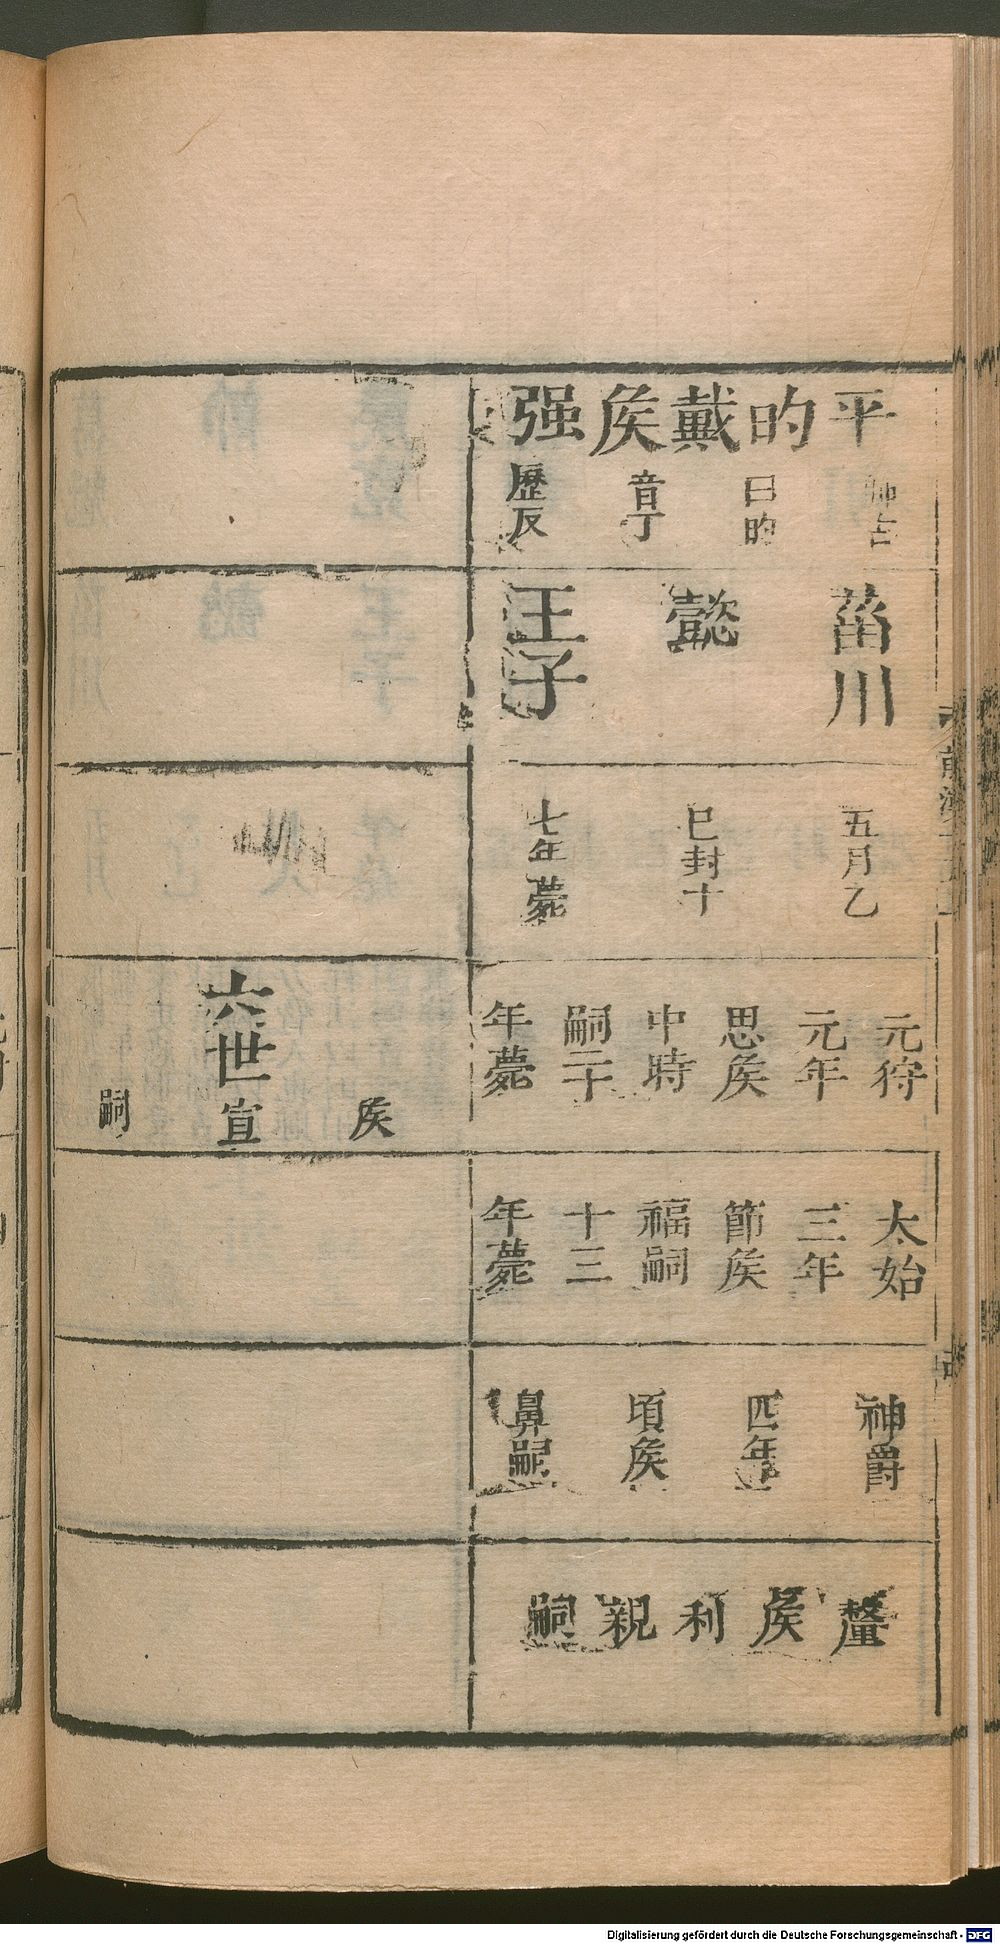 平
的
戴
矦
强
師古
曰的
音丁
歷反
菑川
懿
王子
五月乙
巳封十
七年薨
元狩
元年
思矦
中時
嗣二十
年薨
太始
三年
節矦
福嗣
十三
年薨
神爵
四年
頃矦
鼻嗣
釐
矦
利
親
嗣
矦
六世宣
嗣
Digitalisierung gefördert durch die Deutsche Forschungsgemeinschaft - DFG